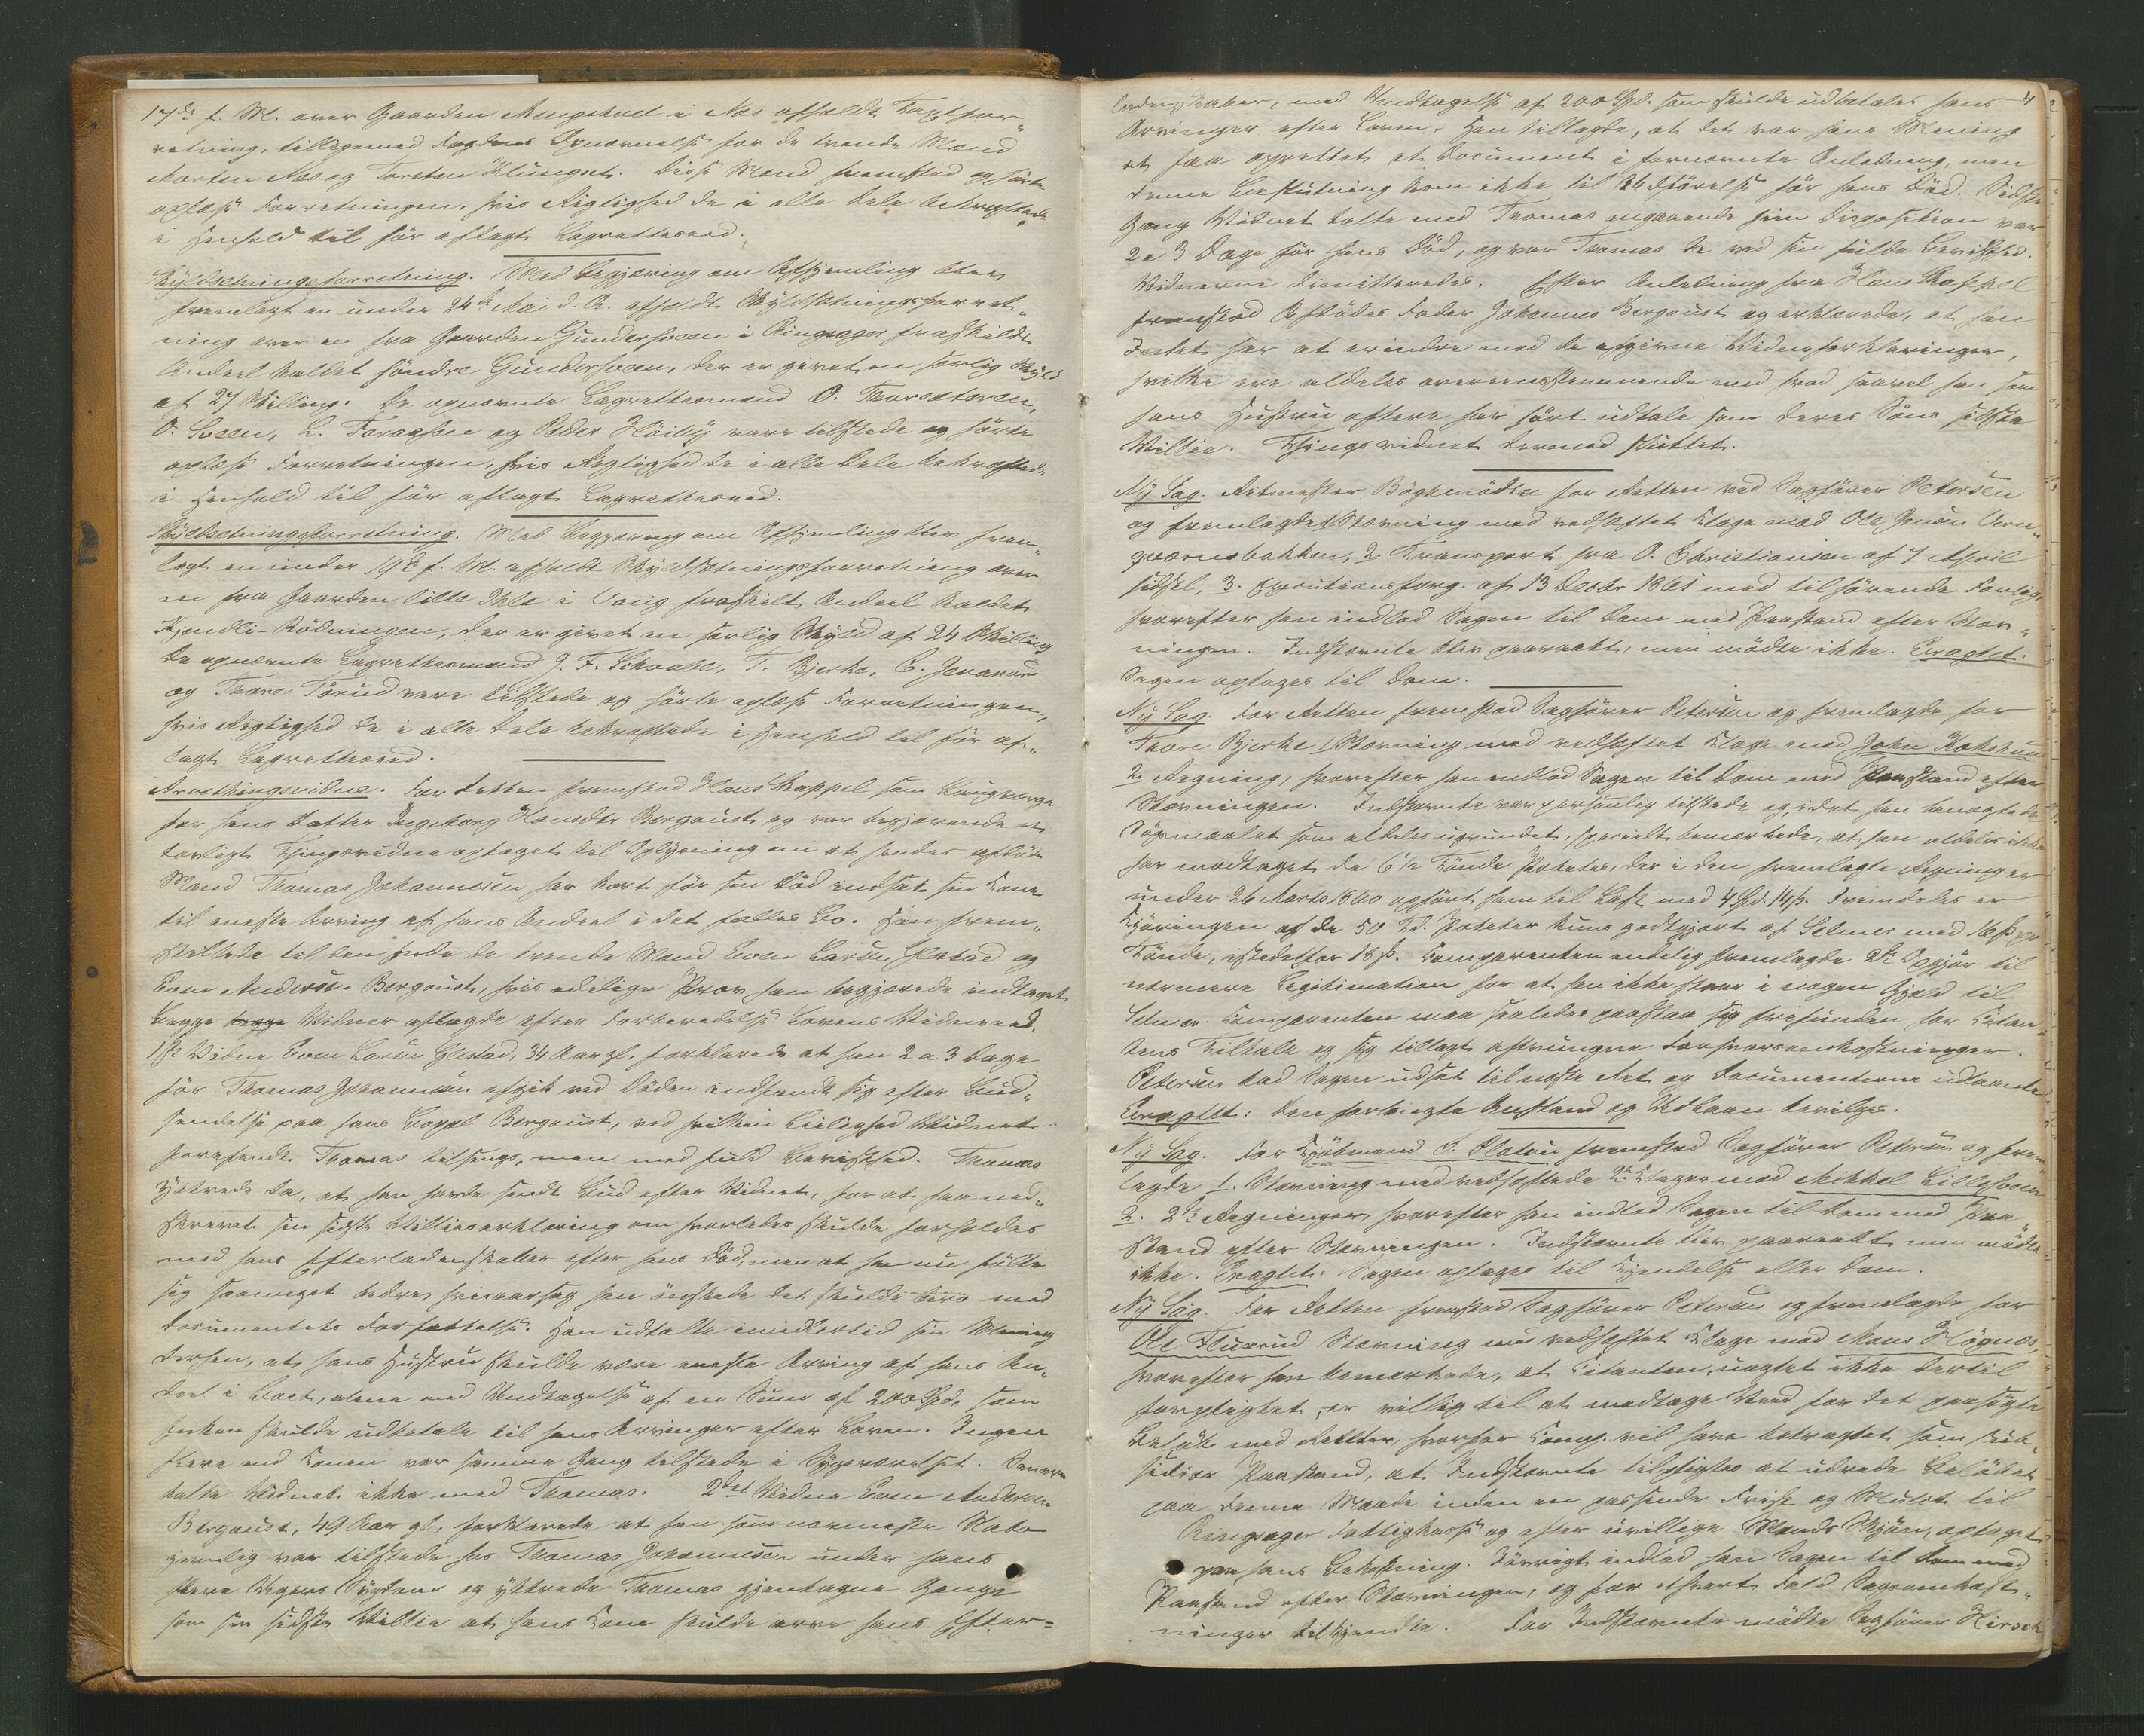 17de f. M. over Gaarden Ringstvet i Næs afholdt Taxtfor„
retning, tilligemed Fogdens Opnævnelse for de tvende Mænd
Morten Næs og Torsten Klunget. Disse Mænd fremstod og hørte
oplæst Forretningen, hvis Rigtighed de i alle Dele bekræftede
i Henhold til før aflagt Lagretteseed.
Skyldsetningsforretning. Med Begjæring om Afhjemling blev
fremlagt en under 24de Mai d. A. afholdt Skyldsætningsforret„
ning over en fra Gaarden Gundersveen i Ringsager fraskildt
Andeel kaldet søndre Gundersveen, der er givet en særlig Skyld
af 27 Skilling. De opnævnte Lagrettesmænd O.
O. Sveen, L. og Peder Høiby vare tilstede og hørte
oplæst Forretningen, hvis Rigtighed de i alle Dele bekræftede
i Henhold til før aflagt Lagretteseed.
Skyldsetningsforretning. Med Begjæring om Afhjemling blev frem„
lagt en under 19de f. M. afholdt Skyldsætningsforretning over
en fra Gaarden lille Ihle i Vang fraskilt Andeel kaldet
Kjendli-Rødningen, der er givet en særlig Skyld af 24 Skilling
De opnævnte Lagrettesmænd J. F. Schwabe, T. Bjerke, E. Jevanord
og Thore Torud vare tilstede og hørte oplæst Forretningen,
hvis Rigtighed de i alle Dele bekræftede i Henhold til før af„
lagt Lagretteseed.
Arvethingsvidne. For Retten fremstod Hans Kappel som Laugværge
for hans Datter Ingeborg Hansdtr Bergaust og var begjærende et
lovligt Thingsvidne optaget til Oplysning om at hendes afdøde
Mand Thomas Johannesen har kort før sin Død indsat sin Kone
til eneste Arving af hans Andeel i det fælles Bo. Han frem„
stillede til den Ende de tvende Mænd Even Larsen Glestad og
Even Andersen Bergaust, hvis edelige Prov han begjærede indtaget
Begge begge Vidner aflagde efter Forberedelse Lovens Vidneeed.
1ste Vidne Even Larsen Glestad, 34 Aar gl, forklarede at han 2 a 3 Dage
før Thomas Johannesen afgik ved Døden indfandt sig efter Bud„
sendelse paa hans Bopæl Bergaust, ved hvilken Leilighed Vidnet
forefandt Thomas tilsengs, men med fuld Bevisthed. Thomas
yttrede da, at han havde sendt Bud efter Vidnet, for at faa ned„
skrevet sin sidste Villieserklæring om hvorledes skulde forholdes
med hans Efterladenskaber efter hans Død, men at han nu følte
sig saameget bedre, hvisaarsag han ønskede det skulde bero med
Documentets Forfattelse. Han udtalte imidlertid sin Mening
derhen, at hans Hustru skulde være eneste Arving af hans An„
deel i Boet, alene med Undtagelse af en Sum af 200 Spd, som
Enken skulde udbetale til hans Arvinger efter Loven. Ingen
flere end Konen var samme Gang tilstede i Sygeværelset. Senere
talte Vidnet ikke med Thomas. 2det Vidne Even Andersen
Bergaust, 49 Aar gl, forklarede at han som nærmeste Nabo
jevnlig var tilstede hos Thomas Johannesen under hans
flere Ugers Sygdom og yttrede Thomas gjentagne Gange
som sin sidste Villie at hans Kone skulde arve hans Efter=
4
ladenskaber, med Undtagelse af 200 Spd. som skulde udbetales hans
Arvinger efter Loven. Han tillagde, at det var hans Mening
at faa oprettet et Document i fornævnte Anledning, men
denne Beslutning kom ikke til Udførelse før hans Død. Sidste
Gang Vidnet talte med Thomas angaaende sin Disposition var
2 a 3 Dage før hans Død, og var Thomas da ved sin fulde Bevisthed.
Vidnerne dimitteredes. Efter Anledning fra Hans Kappel
fremstod Afdødes Fader Johannes Bergaust og erklærede, at han
Intet har at erindre mod de afgivne Vidneforklaringer,
hvilke ere aldeles overeensstemmende med hvad saavel han som
hans Hustru oftere har hørt udtale som deres Søns sidste
Villie. Thingsvidnet dermed sluttet.
Ny Sag. Ritmester Bøgh mødte for Retten ved Sagfører Petersen
og fremlagde 1 Stævning med vedheftet Klage mod Ole Jensen
qværnsbakken, 2 Transport fra O. Christiansen af 7 April
sidstl, 3. Executionsforg. af 13 Decbr 1861 med tilhørende Forlig,
hvorefter han indlod Sagen til Dom med Paastand efter Stæv„
ningen. Indstævnte blev paaraabt, men mødte ikke. Eragtet.
Sagen optages til Dom.
Ny Sag. For Retten fremstod Sagfører Petersen og fremlagde for
Thore Bjerke 1 Stævning med vedheftet Klage mod John Kokshuus
2 Regning, hvorefter han indlod Sagen til Dom med Paastand efter
Stævningen. Indstævnte var personlig tilstede og, idet han benægtede
Søgsmaalet som aldeles ugrundet, specielt bemærkede, at han aldeles ikke
har modtaget de 6½ Tønde Poteter, der i den fremlagte Regning er
under 26 Marts 1860 opført ham til Last med 4 Spd. 14 s. Fremdeles er
Kjøringen af de 50 Td. Poteter kuns godtgjort af Selmer med 16 s pr
Tønde, istedetfor 18 s. Comparenten endelig fremlagde 2de Opgjør til
nærmere Legitimation for at han ikke staar i nogen Gjæld til
Selmer. Comparenten maa saaledes paastaa sig frifunden for Citan„
tens Tiltale og sig tillagt aftvungne Forsvarsomkostninger.
Petersen bad Sagen udsat til næste Ret og Documenterne udlaante
Eragtet: Den forlangte Anstand og Udlaan bevilges.
Ny Sag. For Kjøbmand O. Olsen fremstod Sagfører Petersen og frem„
lagde 1. Stævning med vedheftede 2de Klager mod Mikkel Lillesveen
2. 2de Regninger, hvorefter han indlod Sagen til Dom med Paa„
stand efter Stævningen. Indstævnte blev paaraabt men mødte
ikke. Eragtet: Sagen optages til Kjendelse eller Dom.
Ny Sag. For Retten fremstod Sagfører Petersen og fremlagde for
Ole Fluerud Stævning med vedheftet Klage mod Mons Høgnæs,
hvorefter han bemærkede, at Citanten, uagtet ikke dertil
forpligtet, er villig til at modtage Veed for det paasøgte
Beløb med Renter, hvorfor Comp. vil have betragtet som sub„
sidiær Paastand, at Indstævnte tilpligtes at udrede Beløbet
paa denne Maade inden en passende Frist og Mulct til
Ringsager Fattigkasse og efter uvillige Mænds Skjøn, optaget
paa hans Bekostning. Iøvrigt indlod han Sagen til Dom med
Paastand efter Stævningen, og for ethvert Fald Sagsomkost„
ninger tilkjendte. For Indstævnte mødte Sagfører Hirsch